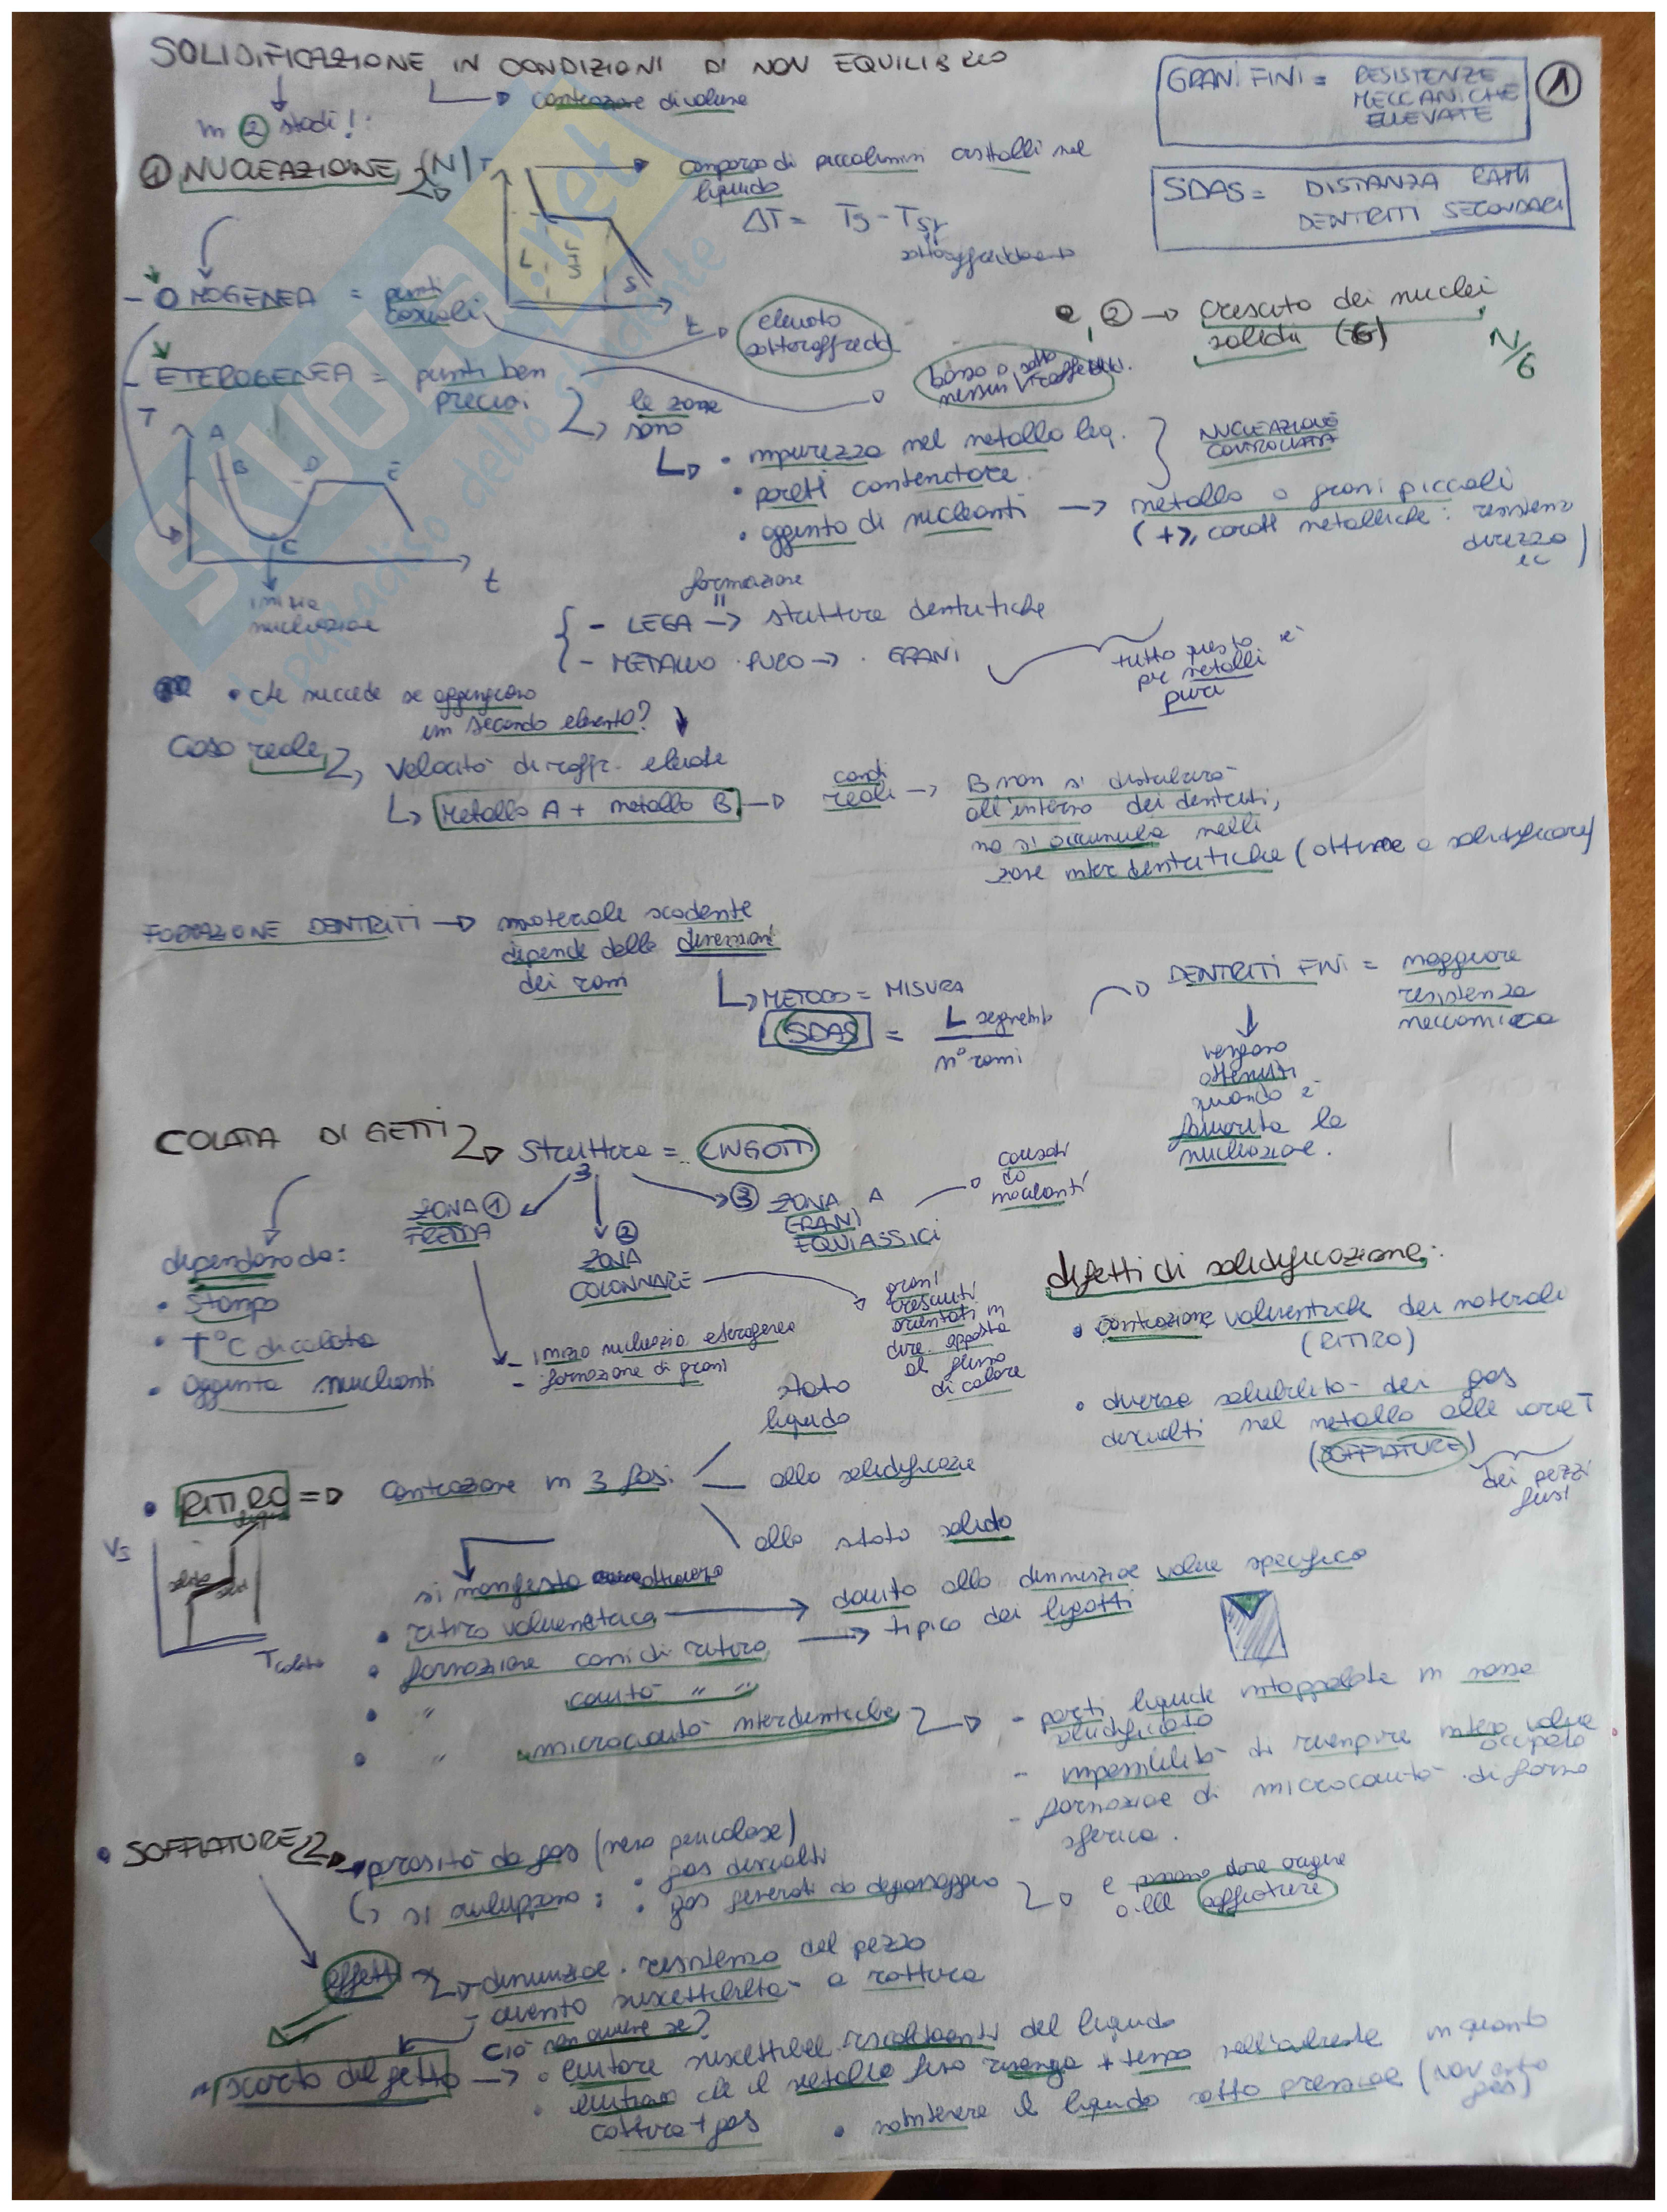 SOLIDIFICAZIONE IN CONDIZIONI DI NON EQUILIBRIO
contrazione di volume
in 2 stadi!:
GRANI FINI = RESISTENZE
MECCANICHE
ELLEVATE
1
SDAS = DISTANZA RAMI
DENTRITI SECONDARI
1 NUCLEAZIONE (N)
T
comparsa di piccolissimi cristalli nel
liquido
ΔT = Ts - Tsr
sottoraffreddamento
L
L+S
S
t
- OMOGENEA = punti
casuali
elevato
sottoraffredd
e, 2 → crescita dei nuclei
solidi (G)
N/G
- ETEROGENEA = punti ben
precisi
basso o
nessun
le zone
sono
• impurezza nel metallo liq.
• pareti contenitore
• aggiunta di nucleanti → metallo a grani piccoli
NUCLEAZIONE
CONTROLLATA
(+ caratt metalliche: resistenza
durezza
ec)
T
A
B
C
D
E
t
inizia
nucleazione
formazione
- LEGA → strutture dentritiche
- METALLO PURO → GRANI
tutto questo è
per metalli
puri
• che succede se aggiungiamo
un secondo elemento?
Caso reale
velocità di raffr. elevate
Metallo A + metallo B
cond
reali →
B non si distribuirà
all'interno dei dentriti,
ma si accumula nelle
zone interdentritiche (ottime a solidificare)
FORMAZIONE DENTRITI → materiale scadente
dipende delle dimensioni
dei rami
METODO = MISURA
SDAS = L segmento
n° rami
DENTRITI FINI = maggiore
resistenza
meccanica
vengono
ottenuti
quando è
favorita la
nucleazione.
COLATA DI GETTI
Struttura = LINGOTTI
3
ZONA 1
FREDDA
2
ZONA
COLONNARE
3 ZONA A
GRANI
EQUIASSICI
causati
da
inoculanti
dipendono da:
• Stampo
• T°C di colata
• aggiunta nucleanti
- inizio nucleazio. eterogenea
- formazione di grani
grani
cresciuti
orientati in
dire. opposta
al flusso
di calore
difetti di solidificazione:
• contrazione volumetriche dei materiali
(RITIRO)
• diversa solubilità dei gas
disciolti nel metallo alle varie T
(SOFFIATURE)
dei pezzi
fusi
• RITIRO ⇒ contrazione in 3 fasi:
stato
liquido
alla solidificazione
allo stato solido
Vs
T colata
si manifesta attraverso
• ritiro volumetrico → dovuto alla diminuzione volume specifico
• formazione coni di ritiro → tipico dei ligotti
• " cavità " "
• " microcavità interdentritiche
- parti liquide intrappolate in massa
solidificata
- impossibilità di riempire intero volume
occupato
- formazione di microcavità di forma
sferica.
• SOFFIATURE
porosità da gas (meno pericolose)
si sviluppano: • gas disciolti
• gas generati da degassaggio
e possono dare origine
alle soffiature
effetti
- diminuzione resistenza del pezzo
- aumento suscettibilità a rottura
ciò non avviene se?
scarto del getto → • evitare riscaldamenti del liquido
• evitiamo che il metallo fuso rimanga + tempo nell'ambiente in quanto
cattura + gas
• mantenere il liquido sotto pressione (non entra
gas)
SKUOLA.net
il paradiso dello studente